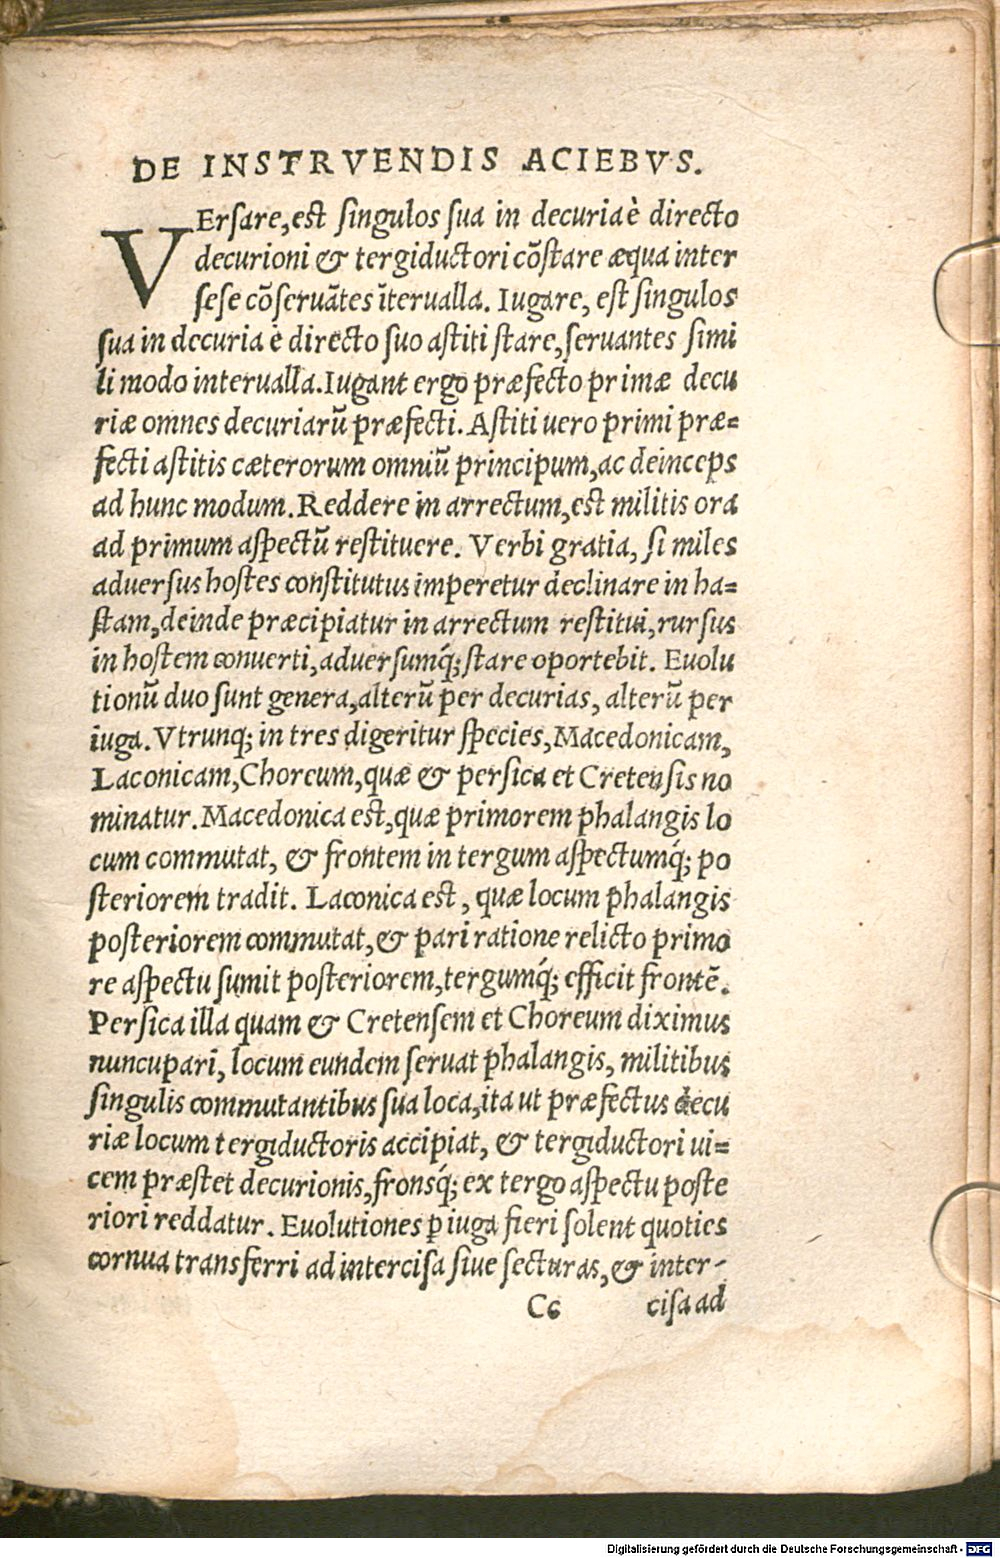 DE INSTRVENDIS ACIEBVS.
VErsare, est singulos sua in decuria è directo
decurioni & tergiductori cõstare æqua inter
sese cõseruãtes ĩterualla. Iugare, est singulos
sua in decuria è directo suo astiti stare, seruantes simi
li modo interualla. Iugant ergo præfecto primæ decu
riæ omnes decuriarũ præfecti. Astiti uero primi præ=
fecti astitis cæterorum omniũ principum, ac deinceps
ad hunc modum. Reddere in arrectum, est militis ora
ad primum aspectũ restituere. Verbi gratia, si miles
aduersus hostes constitutus imperetur declinare in ha=
stam, deinde præcipiatur in arrectum restitui, rursus
in hostem conuerti, aduersumq́; stare oportebit. Euolu
tionũ duo sunt genera, alterũ per decurias, alterũ per
iuga. Vtrunq; in tres digeritur species, Macedonicam,
Laconicam, Choreum, quæ & persica et Cretensis no
minatur. Macedonica est, quæ primorem phalangis lo
cum commutat, & frontem in tergum aspectumq́; po
steriorem tradit. Laconica est, quæ locum phalangis
posteriorem commutat, & pari ratione relicto primo
re aspectu sumit posteriorem, tergumq́; efficit frontẽ.
Persica illa quam & Cretensem et Choreum diximus
nuncupari, locum eundem seruat phalangis, militibus
singulis commutantibus sua loca, ita ut præfectus decu
riæ locum tergiductoris accipiat, & tergiductori ui=
cem præstet decurionis, fronsq́; ex tergo aspectu poste
riori reddatur. Euolutiones ꝑ iuga fieri solent quoties
cornua transferri ad intercisa siue secturas, & inter-
Cc cisa ad
Digitalisierung gefördert durch die Deutsche Forschungsgemeinschaft - DFG